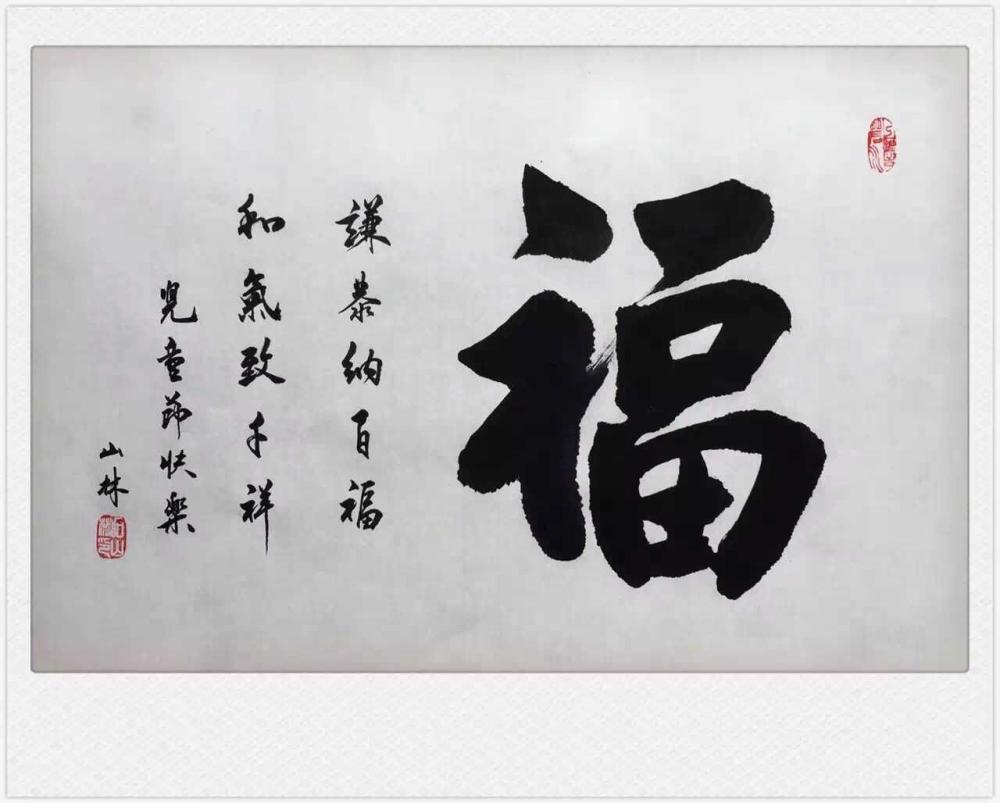 福
謙恭納百福
和氣致千祥
兒童節快樂
山林